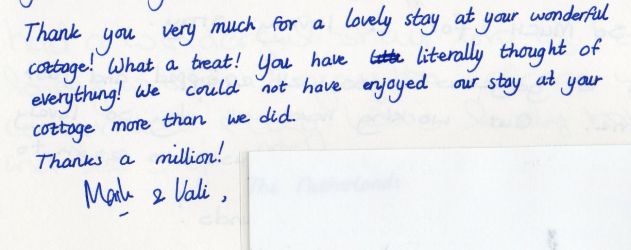 Thank you very much for a lovely stay at your wonderful
cottage! What a treat! You have literally thought of
everything! We could not have enjoyed our stay at your
cottage more than we did.
Thanks a million!
Mark & Vali,
The Netherlands